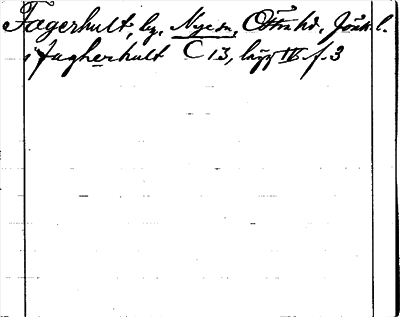 Fagerhult, by, Nye sn, Östra hd, Jönk. l.
i fagherhult C 13, lägg IV f. 3